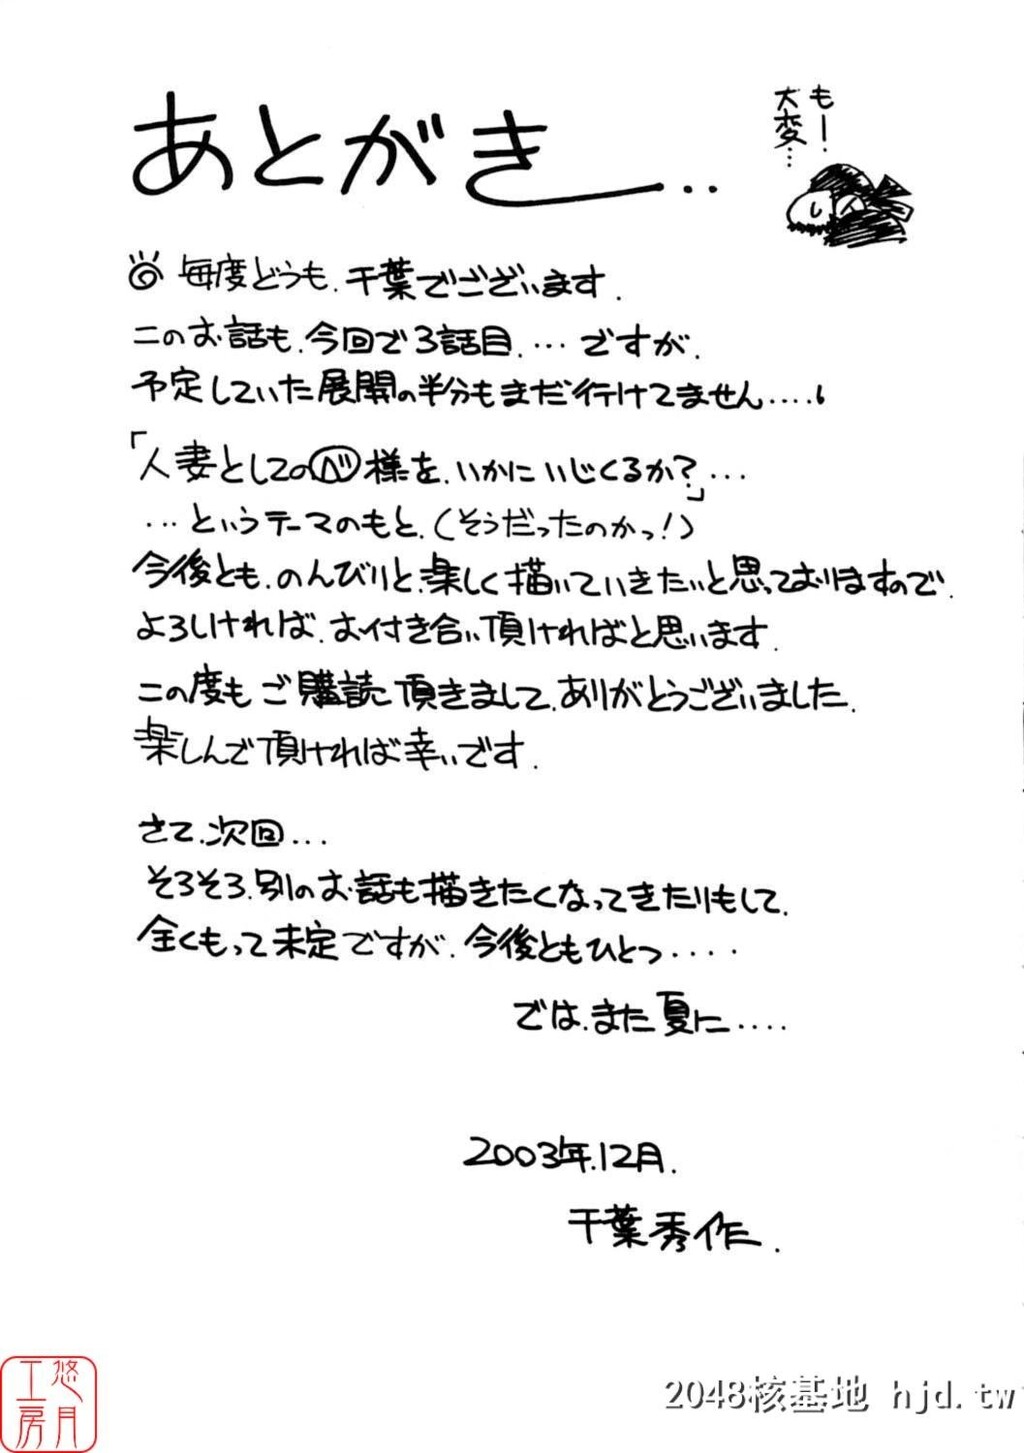 あとがき‥
もー!
大変…
毎度どうも、千葉でございます.
このお話も、今回で3話目、…ですが、
予定していた展開の半分もまだ行けてません….
「人妻としてのベ様を、いかにいじくるか?」…
…というテーマのもと、(そうだったのかっ!)
今後とも、のんびりと、楽しく描いていきたいと思っておりますので、
よろしければ、お付き合い頂ければと思います.
この度もご購読頂きまして、ありがとうございました.
楽しんで頂ければ幸いです.
さて、次回…
そろそろ、別のお話も描きたくなってきたりもして、
全くもって未定ですが、今後ともひとつ‥‥
では、また夏に‥‥
2003年.12月.
千葉秀作.
悠月工房
2048核基地 hjd.tw